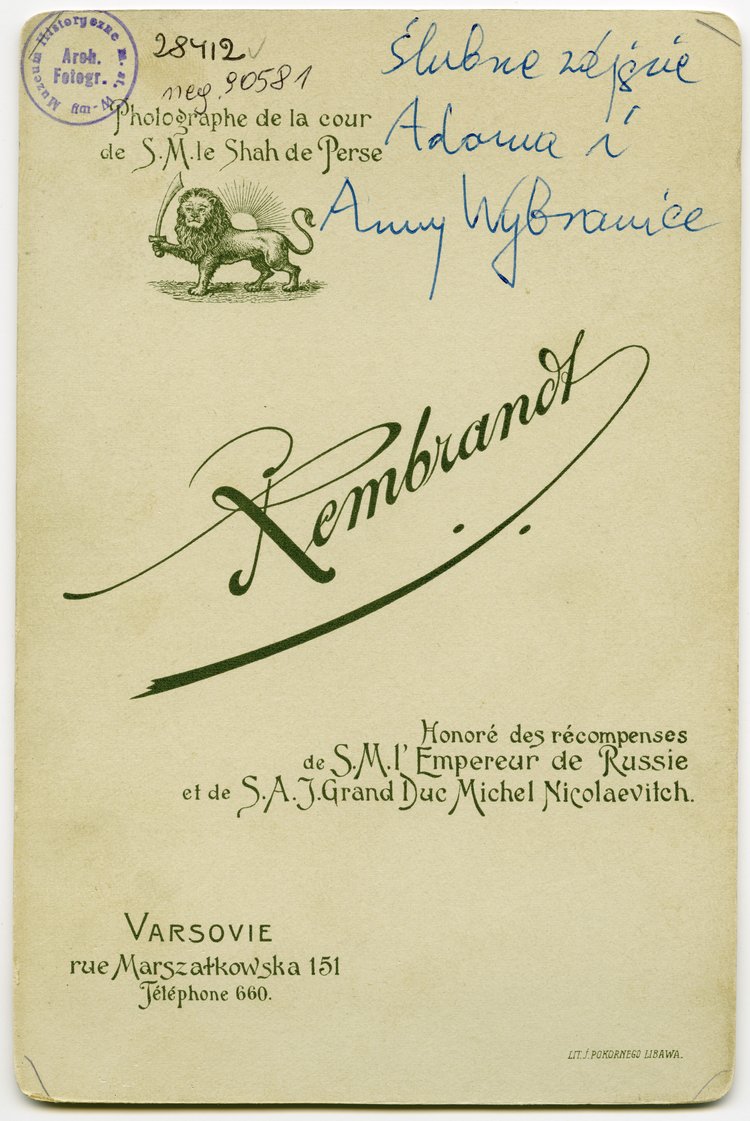 Muzeum Historyczne m. st. W-wy
Arch.
Fotogr.
28412
neg. 90581
Ślubne zdjęcie
Adama i
Anny Wybranice
Photographe de la cour
de S.M. le Shah de Perse
Rembrandt
Honoré des récompenses
de S.M. l' Empereur de Russie
et de S.A.J. Grand Duc Michel Nicolaevitch.
VARSOVIE
rue Marszałkowska 151
Téléphone 660.
LIT. J. POKORNEGO LIBAWA.